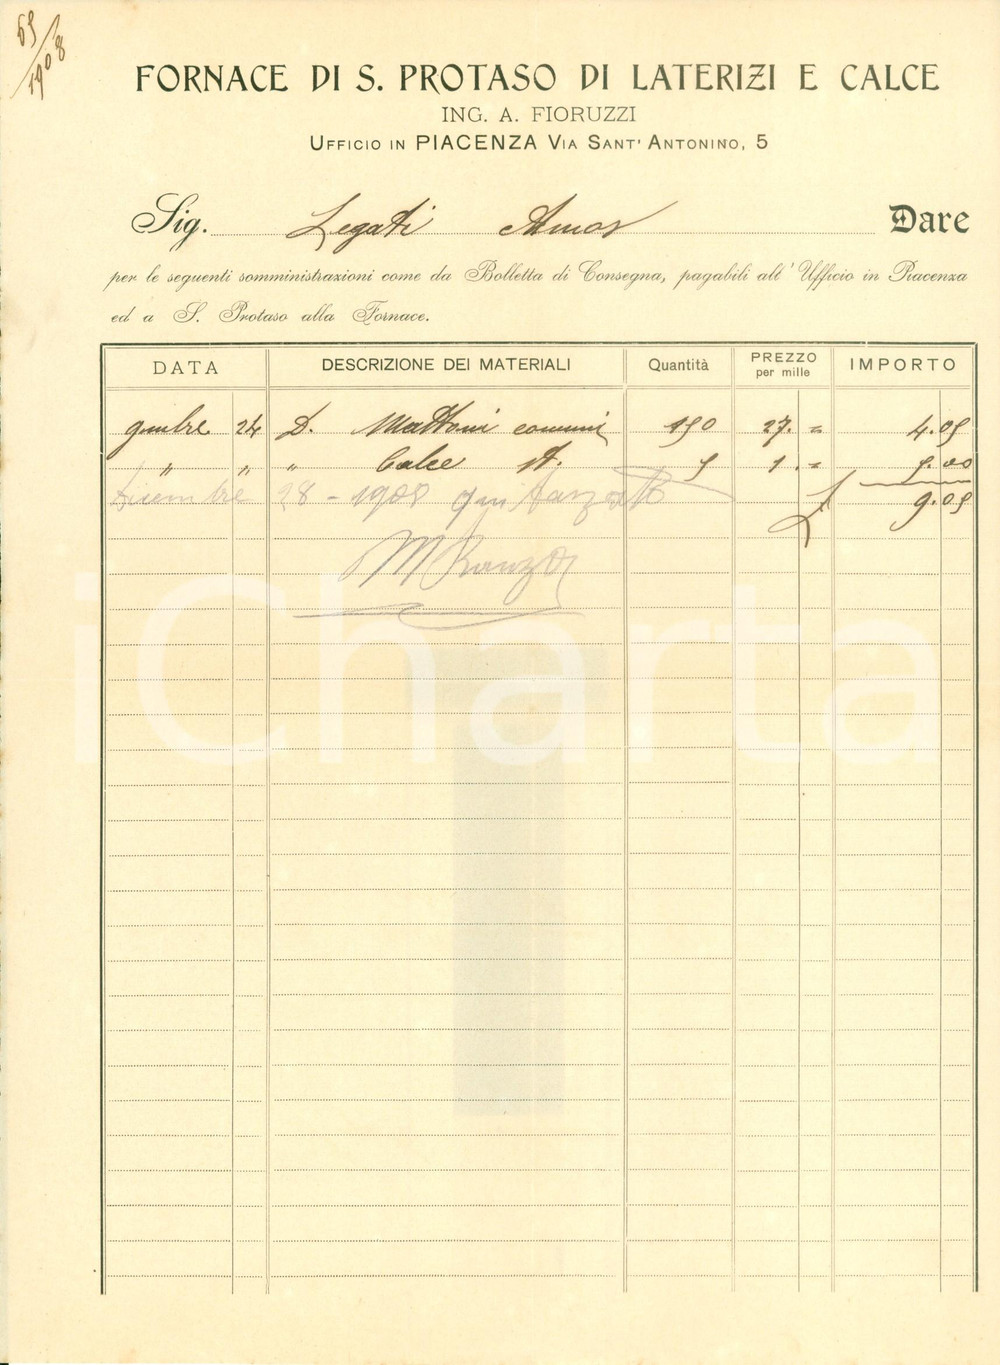 59/1908
FORNACE DI S. PROTASO DI LATERIZI E CALCE
ING. A. FIORUZZI
UFFICIO IN PIACENZA VIA SANT' ANTONINO, 5
Sig. Legati Amos Dare
per le seguenti somministrazioni come da Bolletta di Consegna, pagabili all' Ufficio in Piacenza
ed a S. Protaso alla Fornace.
DATA DESCRIZIONE DEI MATERIALI Quantità PREZZO per mille IMPORTO
9mbre 24 D. Mattoni comuni 150 27. = 4.05
" " " Calce 5 1. = 5.00
Dicembre 28 - 1908 quitanzato £ 9.05
iCharta